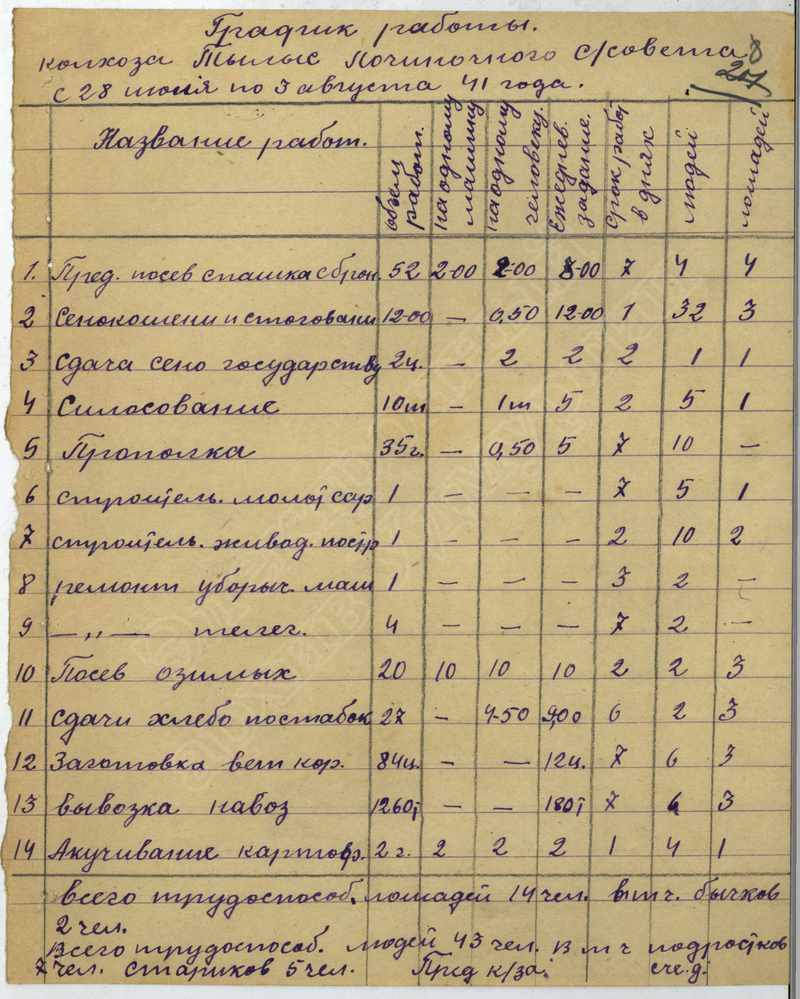 График работы.
колхоза Тылыс Починочного с/совета
с 28 июля по 3 августа 41 года.
Название работ. объем работ. на одному машину на одному человеку. Ежеднев. задание. Срок работ в днях людей лошадей
1. Пред. посев спашка с брон. 52 2-00 2-00 8-00 7 4 4
2 Сенокошени и стоговани 12-00 — 0,50 12-00 1 32 3
3 Сдача сено государству 2ц. — 2 2 2 1 1
4 Силосование 10т — 1т 5 2 5 1
5 Прополка 35г. — 0,50 5 7 10 —
6 строитель. молот сар 1 — — — 7 5 1
7 строитель. живод. постр 1 — — — 2 10 2
8 ремонт уборыч. маш 1 — — — 3 2 —
9 —„— телег. 4 — — — 7 2 —
10 Посев озимых 20 10 10 10 2 2 3
11 Сдачи хлебо поставок 27 — 4-50 9,00 6 2 3
12 Заготовка вет кор. 84ц. — — 12ц. 7 6 3
13 вывозка навоз 1260т — — 180т 7 6 3
14 Акучивание картоф. 2 г. 2 2 2 1 4 1
всего трудоспособ. лошадей 14 чел. в т ч. бычков
2 чел.
Всего трудоспособ. людей 43 чел. в т ч подростков
7 чел. стариков 5 чел. Пред к/за: сче.д.